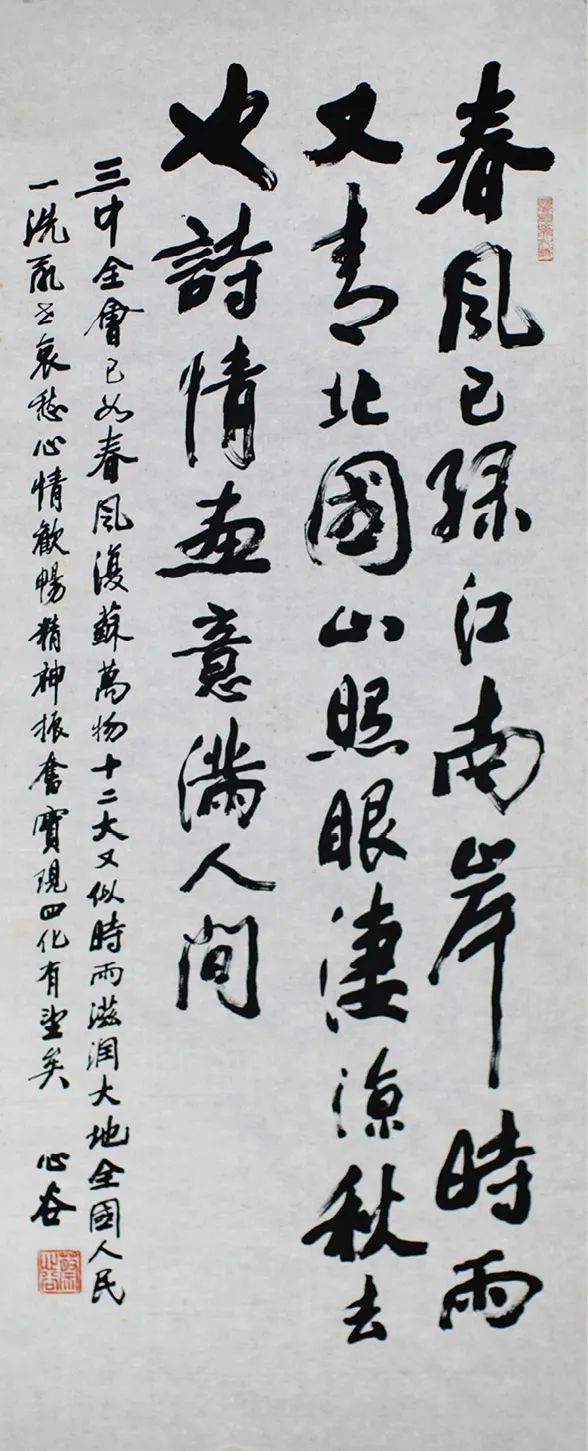 春風已綠江南岸時雨
又青北國山照眼淒涼秋去
也詩情畫意滿人間
三中全會已如春風復蘇萬物十二大又似時雨滋潤大地全國人民
一洗亂世哀愁心情歡暢精神振奮實現四化有望矣 心谷
蔡心谷